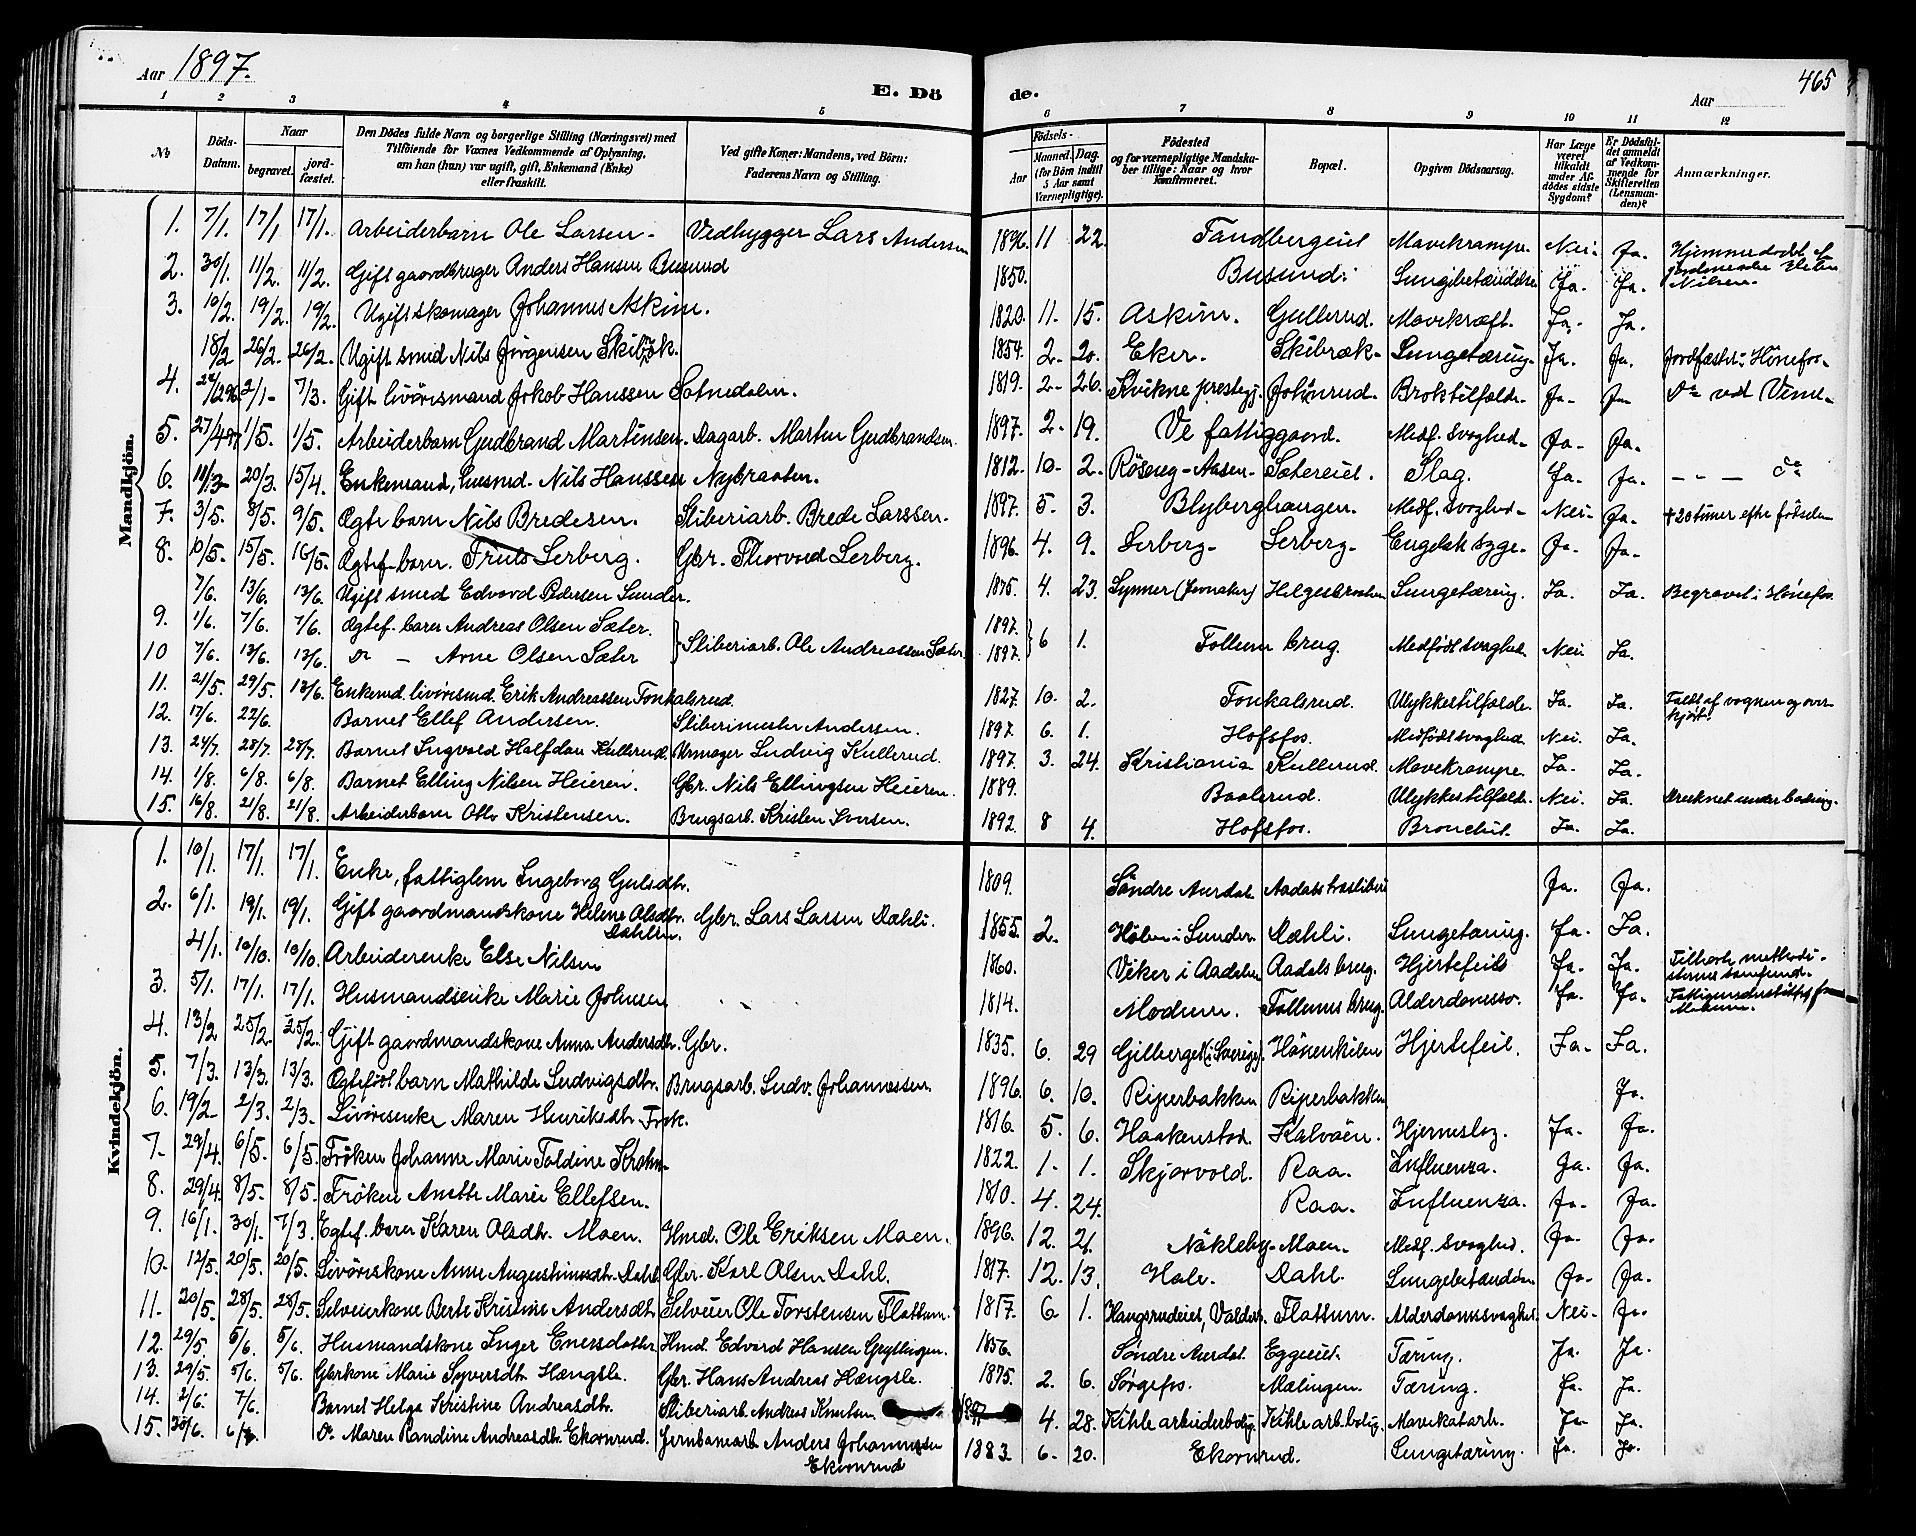 Aar 1897. E. Dö de. Aar 465
1 2 3 4 5 6 7 8 9 10 11 12
№ Döds-Datum. Naar begravet. jord-fæstet. Den Dödes fulde Navn og borgerlige Stilling (Næringsvei) med Tilföiende for Voxnes Vedkommende af Oplysning, om han (hun) var ugift, gift, Enkemand (Enke) eller fraskilt. Ved gifte Koner: Mandens, ved Börn: Faderens Navn og Stilling. Födsels- Aar Maaned. Dag. (for Börn indtil 5 Aar samt Værnepligtige). Födested og for værnepligtige Mandskaber tillige: Naar og hvor konfirmeret. Bopæl. Opgiven Dödsaarsag. Har Læge været tilkaldt under Afdödes sidste Sygdom? Er Dödsfaldet anmeldt af Vedkommende for Skifteretten (Lensmanden)? Anmærkninger.
Mandkjön.
1. 7/1. 17/1 17/1. Arbeiderbarn Ole Larsen - Vedhygger Lars Andersen 1896. 11 22. Tandbergeiet Mavekrampe. Nei. Ja. Hjemmedøbt af
2. 30/1. 11/2. 11/2. Gift gaardbruger Anders Hansen Busund 1850. Busund: Lungebetændelse Ja. Ja. Nilsen.
3. 10/2. 19/2. 19/2. Ugift skomager Johannes Askim. 1820. 11. 15. Askim. Gullerud. Mavekræft. Ja. Ja.
18/2 26/2. 26/2. Ugift smed Nils Jørgensen 1854. 2. 20. Eker. Skibræk. Lungetæring. Ja. Ja. Jordfæstet i Hönefos
4. 2/1 7/3. Gift livörismand Jakob Hanssen Sotnedalen. 1819. 2. 26. Kvikne prestegj. Broktilfælde. Ja. Ja. do ved Veme.
5. 27/4 97 1/5. 1/5. Arbeiderbarn Gudbrand Martinsen. Dagarb. Martin Gudbrandsen. 1897. 2. 19. Ve fattiggaard. Medf. svaghed. Ja. Ja.
6. 11/3 20/3. 15/4. Enkemand, husmd. Nils Hanssen Nybraaten. 1812. 10. 2. Slag. Ja. Ja. - - - do
7. 3/5. 8/5. 9/5. Ægte barn Nils Bredesen. Sliberiarb. Brede Larssen. 1897. 5. 3. Blyberghaugen. Medf. svaghed. Nei. Ja. + 20 timer efter fødselen
8. 10/5. 15/5. 16/5. Ægtef. barn. Truls Lerberg. Gbr. Thorvald Lerberg. 1896. 4. 9. Lerberg. Lerberg. Engelsk syge. Ja. Ja.
7/6. 13/6. 13/6. Ugift smed Edvard Pedersen Sunder. 1875. 4. 23. Lynner (Jevnaker) Helgesbraaten Lungetæring. Ja. Ja. Begravet i Hönefos
9. 1/6. 7/6. 7/6. Ægtef. barn Andreas Olsen Sæter. 1897.
10 7/6. 13/6. 13/6. do - Arne Olsen Sæter Sliberiarb. Ole Andreassen Sæter 1897. 6 1. Follum brug. Medfödt svaghed. Nei. Ja.
11. 21/5. 29/5. 13/6. Enkemd. livörismd. Erik Andreassen Fonkalsrud. 1827. 10. 2. Fonkalsrud. Ulykkestilfælde. Ja. Ja. Faldt af vognen og overkjört.
12. 17/6. 22/6. Barnet Ellef Andersen. Sliberimester Andersen. 1897. 6. 1. Hofsfos. Medfödt svaghed. Nei. Ja.
13. 24/7. 28/7. 28/7. Barnet Ingvald Halfdan Kullerud. Urmager Ludvig Kullerud. 1897. 3. 24. Kristiania Kullerud. Mavekrampe. Ja. Ja.
14. 1/8. 6/8. 6/8. Barnet Elling Nilsen Heieren. Gbr. Nils Ellingsen Heieren. 1889. Baalsrud. Ulykkestilfælde. Nei. Ja. Druknet under badning.
15. 16/8. 21/8. 21/8. Arbeiderbarn Otto Kristensen. Brugsarb. Kristen Iversen. 1892. 8 4. Hofsfos. Bronchit. Ja. Ja.
Kvindekjön.
1. 10/1. 17/1. 17/1. Enke, fattiglem Ingeborg Gulsdtr. 1809. Söndre Aurdal. Aadals træsliberi Ja. Ja.
2. 6/1. 19/1. 19/1. Gift gaardmandskone Helene Olsdtr. Dæhlen. Gbr. Lars Larsen Dæhli. 1855. 2. Dæhli. Lungetæring. Ja. Ja.
4/1. 10/10. 10/10. Arbeiderenke Else Nilsen 1860. Viker i Aadalen Aadals brug. Hjertefeil Ja. Ja. Tilhørte methodisternes samfund.
3. 5/1. 17/1. 17/1. Husmandsenke Marie Johnsen 1814. Modum. Follums brug. Ja. Ja.
4. 13/2 25/2. 25/2. Gift gaardmandskone Anna Andersdtr. Gbr. 1835. 6. 29 Gilberget (i Sverige). Hönenkilen Hjertefeil. Ja. Ja.
5. 7/3. 13/3. 13/3. Ægtefödt barn Mathilde Ludvigsdtr. Brugsarb. Ludv. Johannessen 1896. 6. 10. Riperbakken Riperbakken Ja.
6. 19/2 2/3. 2/3. Livörisenke Maren Henriksdtr. Fosk. 1816. 5. 6. Haakenstad. Kalvöen. Hjerneslag. Ja. Ja.
7. 29/4. 6/5. 6/5. Fröken Johanne Marie Toldine Krohn. 1822. 1. 1. Skjørvold. Raa. Influenza. Ja. Ja.
8. 29/4. 8/5. 8/5. Fröken Anette Marie Ellefsen. 1810. 4. 24. Raa. Influenza. Ja. Ja.
9. 16/1. 30/1. 7/3. Egtef. barn Karen Olsdtr. Moen. Hmd. Ole Eriksen Moen. 1896. 12. 21. Nökleby-Moen. Medf. svaghed. Ja. Ja.
10. 12/5. 20/5. 20/5. Livöriskone Anne Augustinusdtr. Dahl Gbr. Karl Olsen Dahl. 1817. 12. 13. Hole. Dahl. Lungebetændelse Ja. Ja.
11. 20/5. 28/5. 28/5. Selveierkone Berte Kristine Andersdtr. Selveier Ole Torstensen Flattum. 1817. 6. 1. Haugsrudeiet, Valders. Flattum. Alderdomssvaghed. Nei. Ja.
12. 29/5. 5/6. 5/6. Husmandskone Inger Enersdatter Hmd. Edvard Hansen 1856. Söndre Aurdal. Eggeeiet. Tæring. Ja. Ja.
13. 29/5. 5/6. 5/6. Gbrkone Marie Syversdtr. Hængsle. Gbr. Hans Andreas Hængsle. 1875. 2. 6. Sørgefos. Mælingen. Tæring. Ja. Ja.
14. 2/6. 7/6. Barnet Helga Kristine Andreasdtr. Sliberiarb. Andreas Knutsen 1897 4. 28. Kihle arbeiderbolig. Kihle arb.bolig. Mavekatarh. Ja. Ja.
15. 30/6. Do Maren Randine Andreasdtr. Ekornrud. Jernbanearb. Anders Johannessen Ekornrud 1883. 6. 20. Ekornrud. Lungetæring. Ja. Ja.